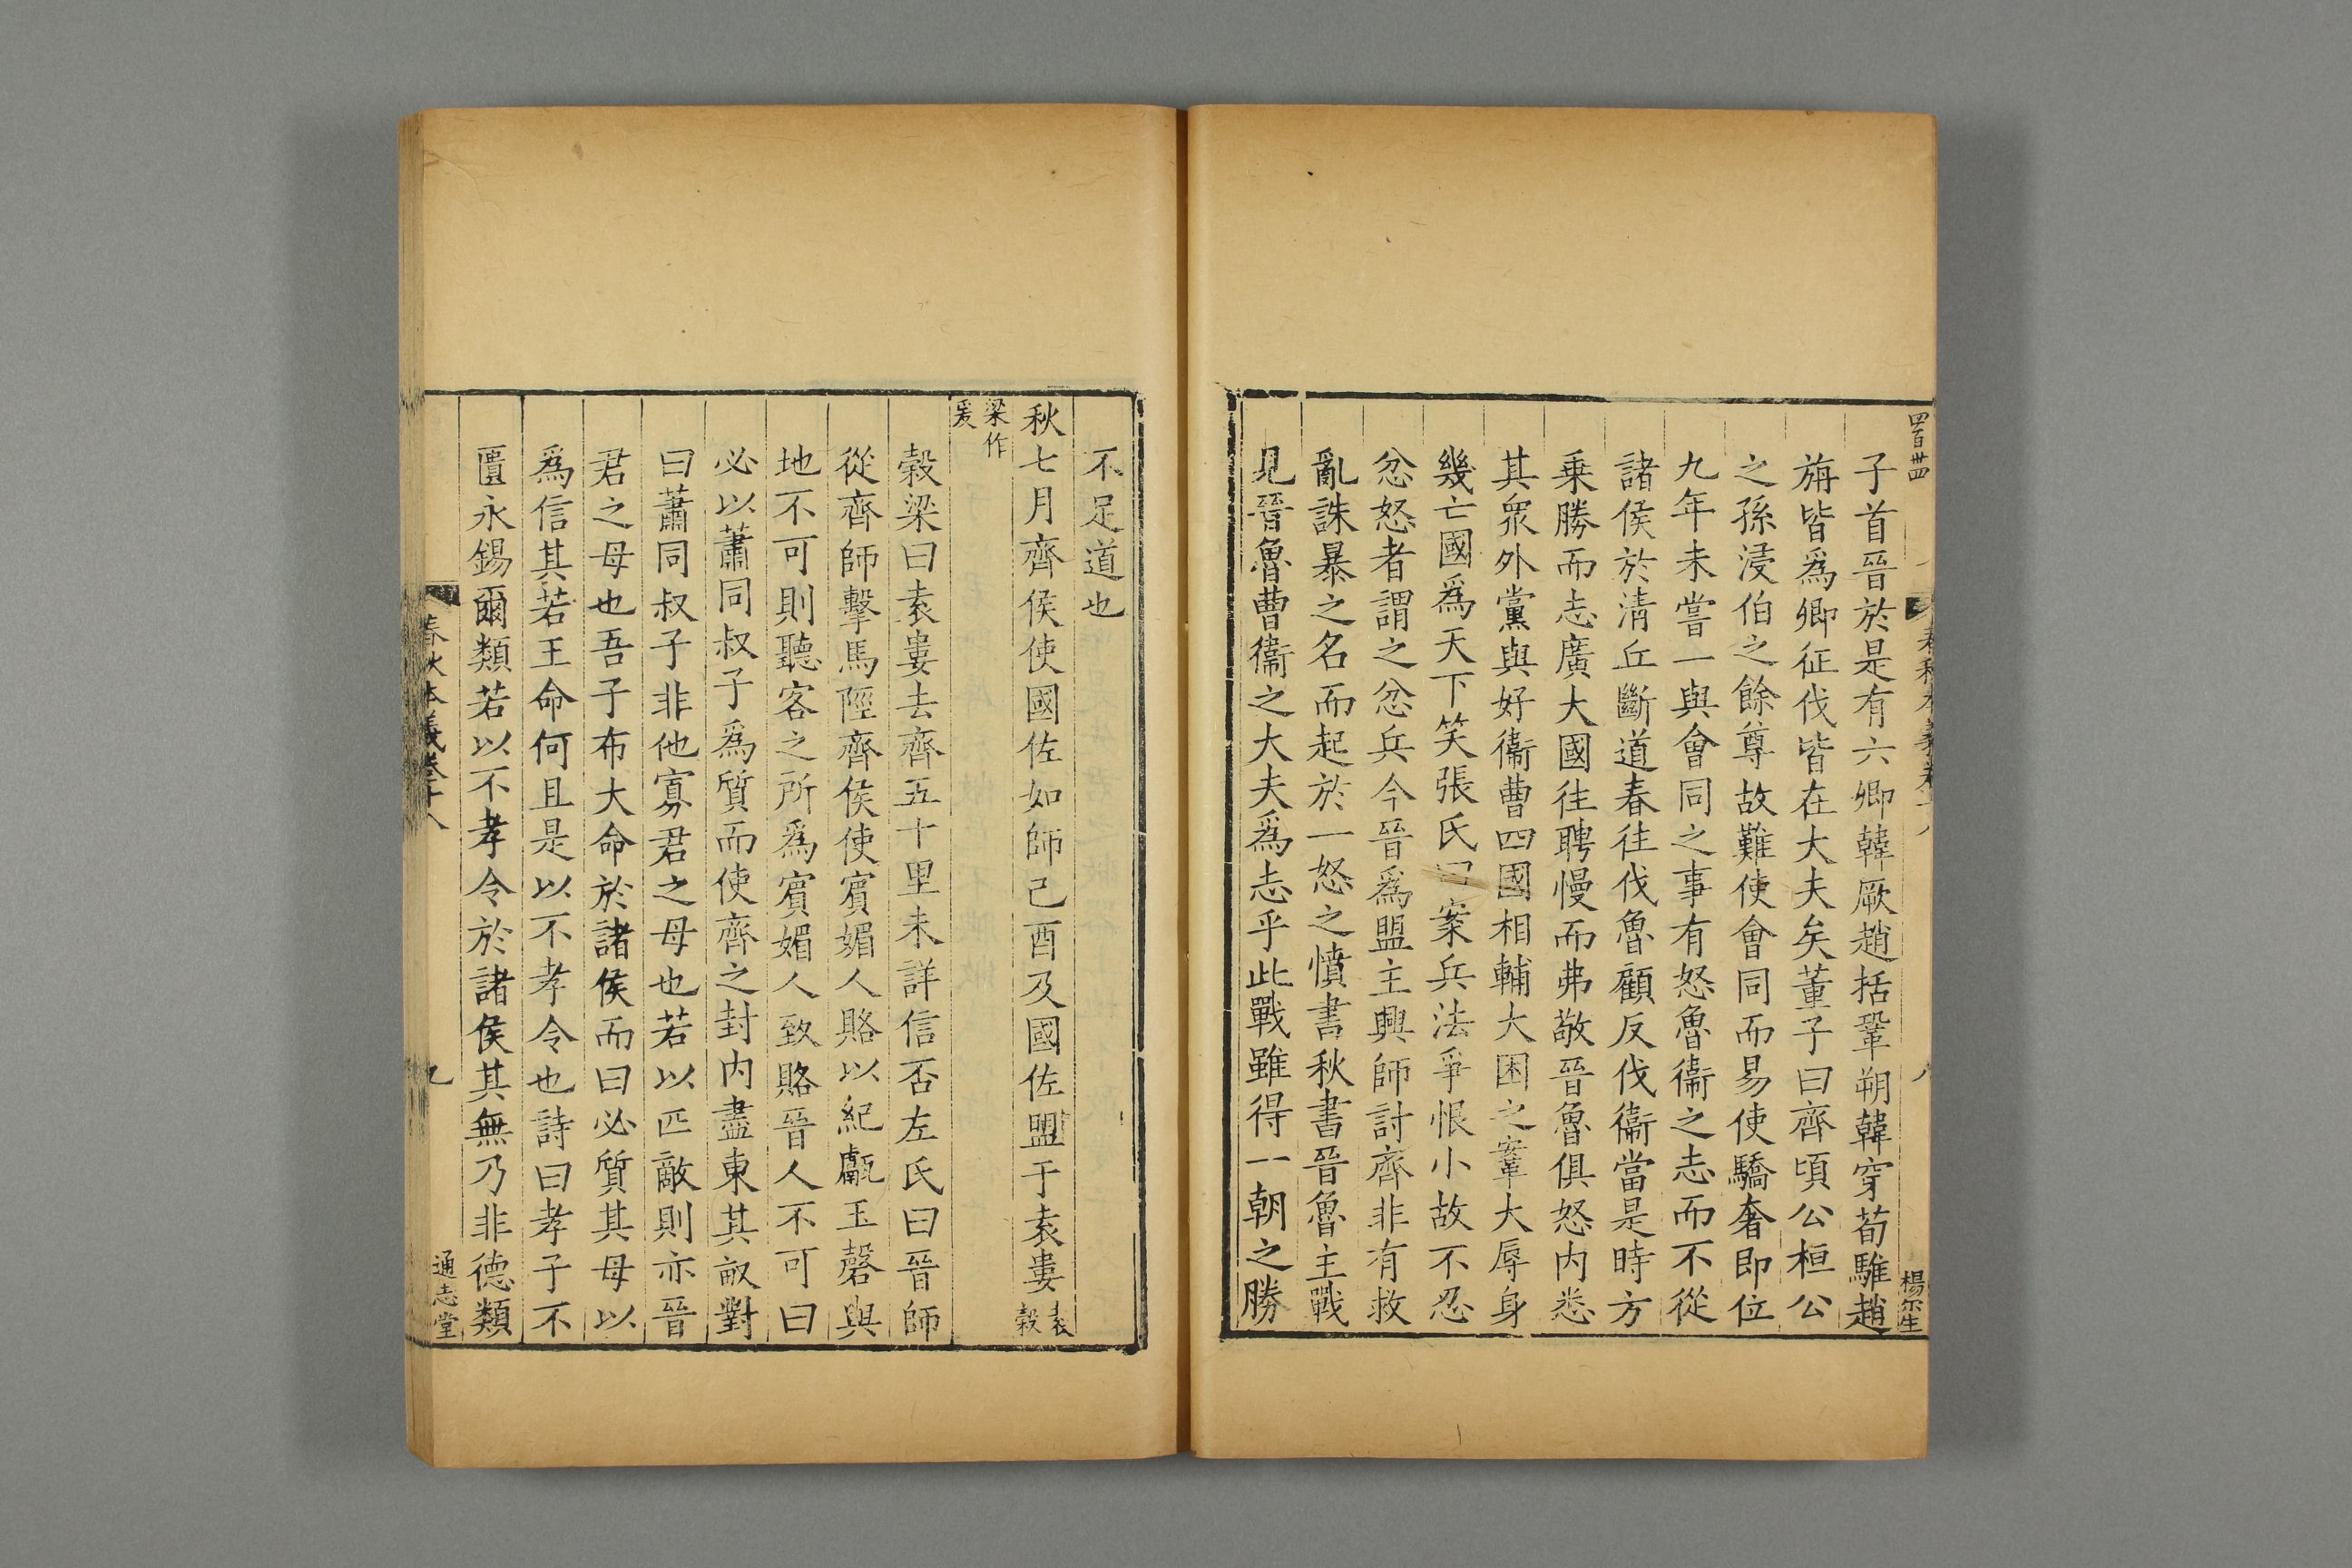 四百廿四
春秋本義卷十八
八
楊尔生
子首晉於是有六卿韓厥趙括鞏朔韓穿荀騅趙
旃皆爲卿征伐皆在大夫矣董子曰齊頃公桓公
之孫浸伯之餘尊故難使會同而易使驕奢即位
九年未嘗一與會同之事有怒魯衞之志而不從
諸侯於清丘斷道春往伐魯顧反伐衞當是時方
乗勝而志廣大國往聘慢而弗敬晉魯俱怒内悉
其衆外黨與好衞曹四國相輔大困之鞌大辱身
幾亡國爲天下笑張氏曰案兵法爭恨小故不忍
忿怒者謂之忿兵今晉爲盟主興師討齊非有救
亂誅暴之名而起於一怒之憤書秋書晉魯主戰
見晉魯曹衞之大夫爲志乎此戰雖得一朝之勝
不足道也
秋七月齊侯使國佐如師己酉及國佐盟于袁婁袁穀
梁作爰
穀梁曰袁婁去齊五十里未詳信否左氏曰晉師
從齊師擊馬陘齊侯使賓媚人賂以紀甗玉磬與
地不可則聽客之所爲賓媚人致賂晉人不可曰
必以蕭同叔子爲質而使齊之封内盡東其畝對
曰蕭同叔子非他寡君之母也若以匹敵則亦晉
君之母也吾子布大命於諸侯而曰必質其母以
爲信其若王命何且是以不孝令也詩曰孝子不
匱永錫爾類若以不孝令於諸侯其無乃非德類
春秋本義卷十八
九
通志堂